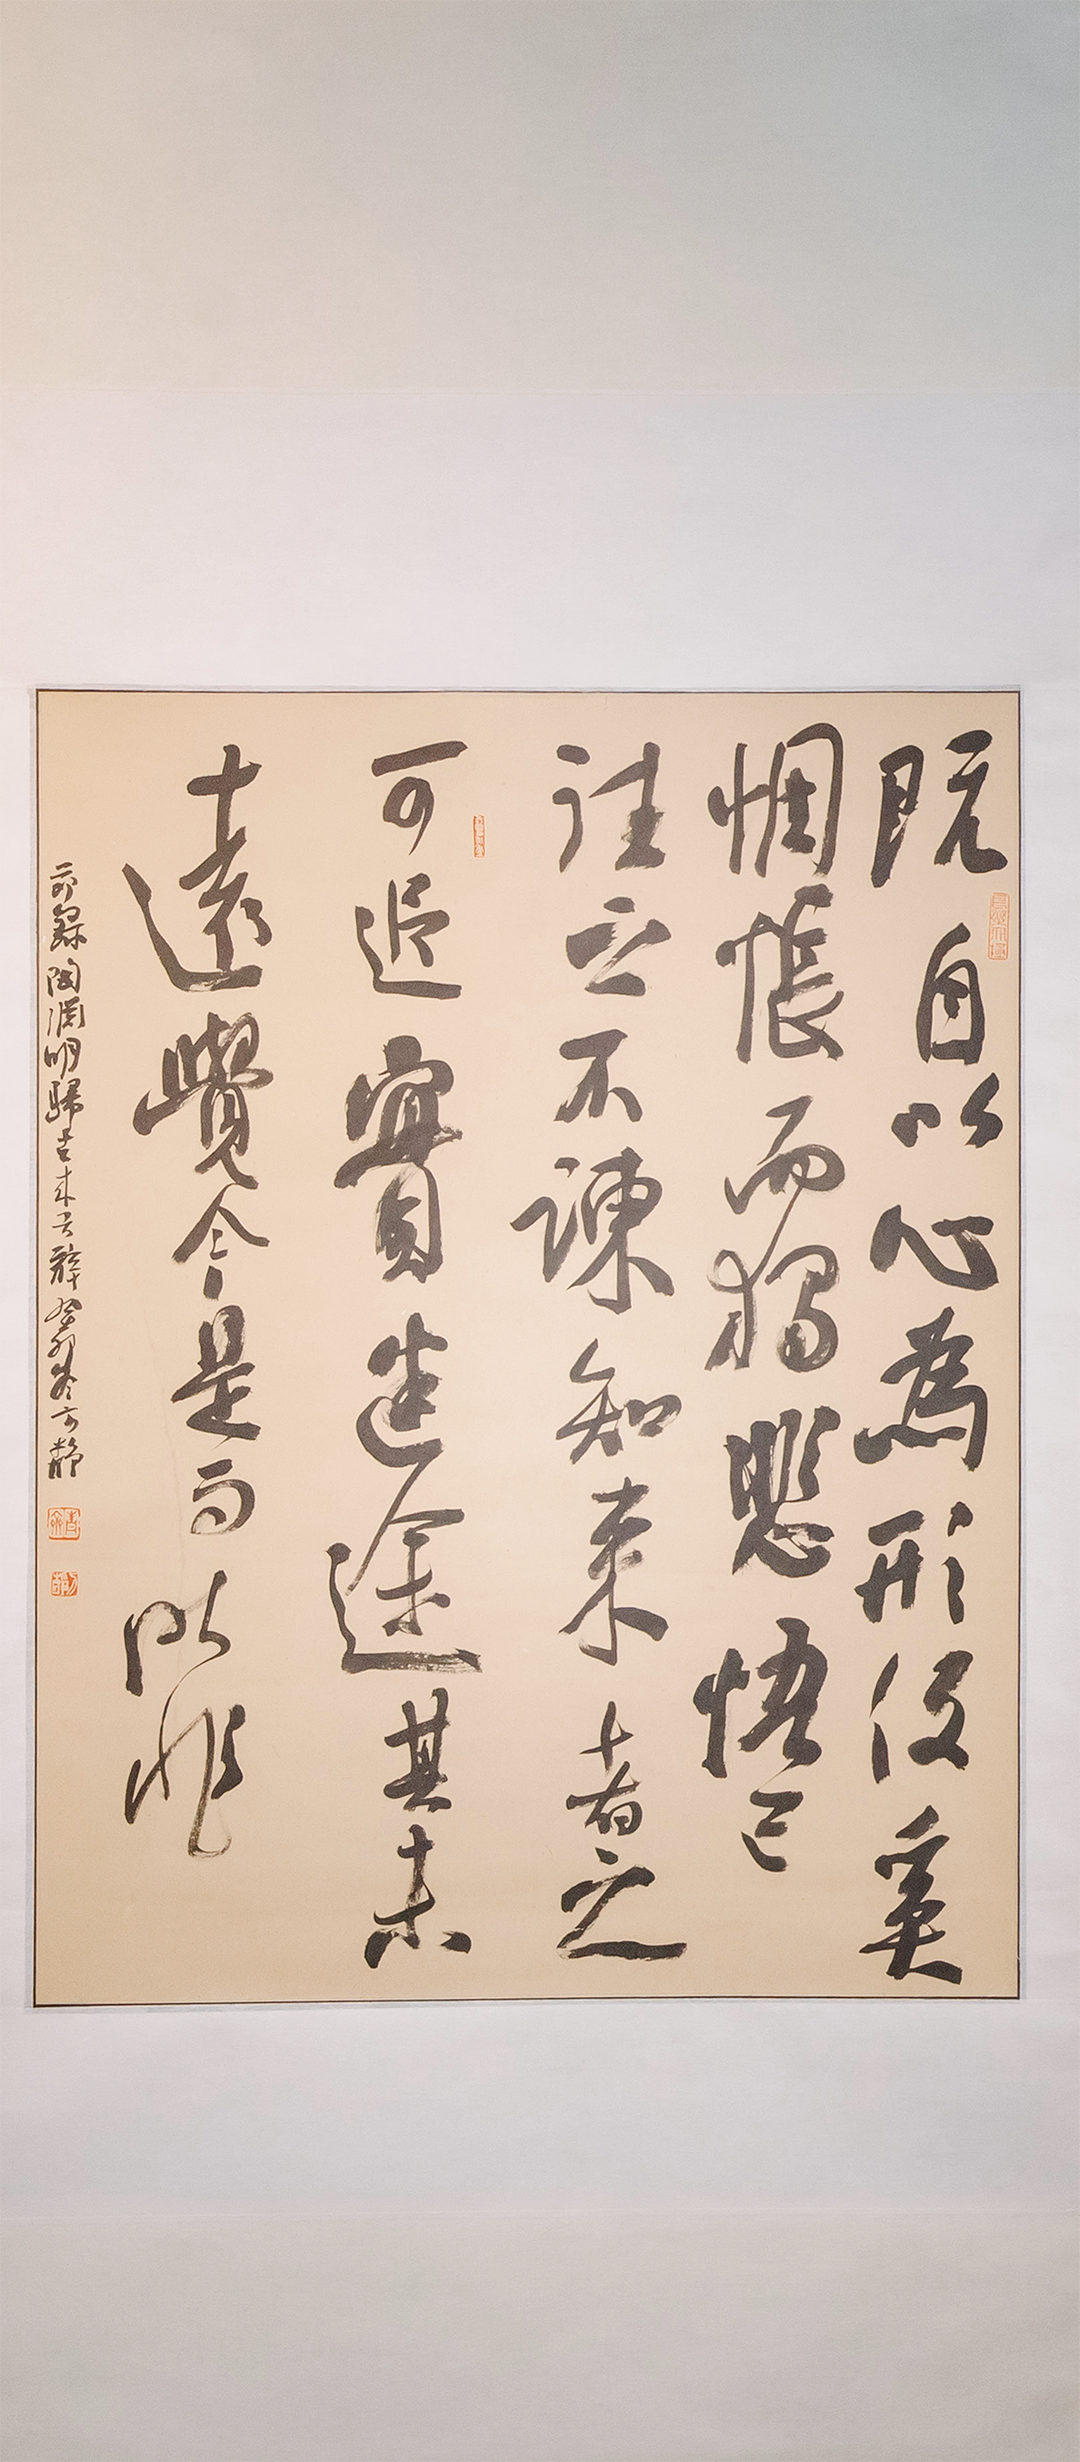 既自以心為形役奚
惆悵而獨悲悟已
往之不諫知来者之
可追實迷途其未
遠覺今是而昨非
節録陶淵明歸去来兮辭癸卯冬方静